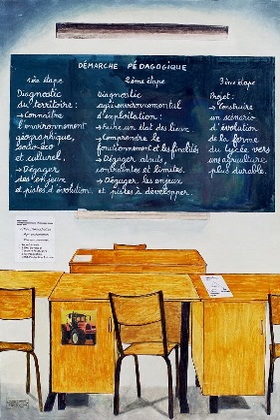 DÉMARCHE PÉDAGOGIQUE
1ère étape
Diagnostic
du territoire :
→ Connaître
l'environnement
géographique,
socio-éco
et culturel.
→ Dégager
des enjeux
et pistes d'évolution.
2ème étape
Diagnostic
agri-environnemental
d'exploitation :
→ Faire un état des lieux
→ Comprendre le
fonctionnement et les finalités
→ Dégager atouts,
contraintes et limites.
→ Dégager les enjeux
et pistes à développer.
3ème étape
Projet :
→ Construire
un scénario
d'évolution
de la ferme
du lycée vers
une agriculture
plus durable.